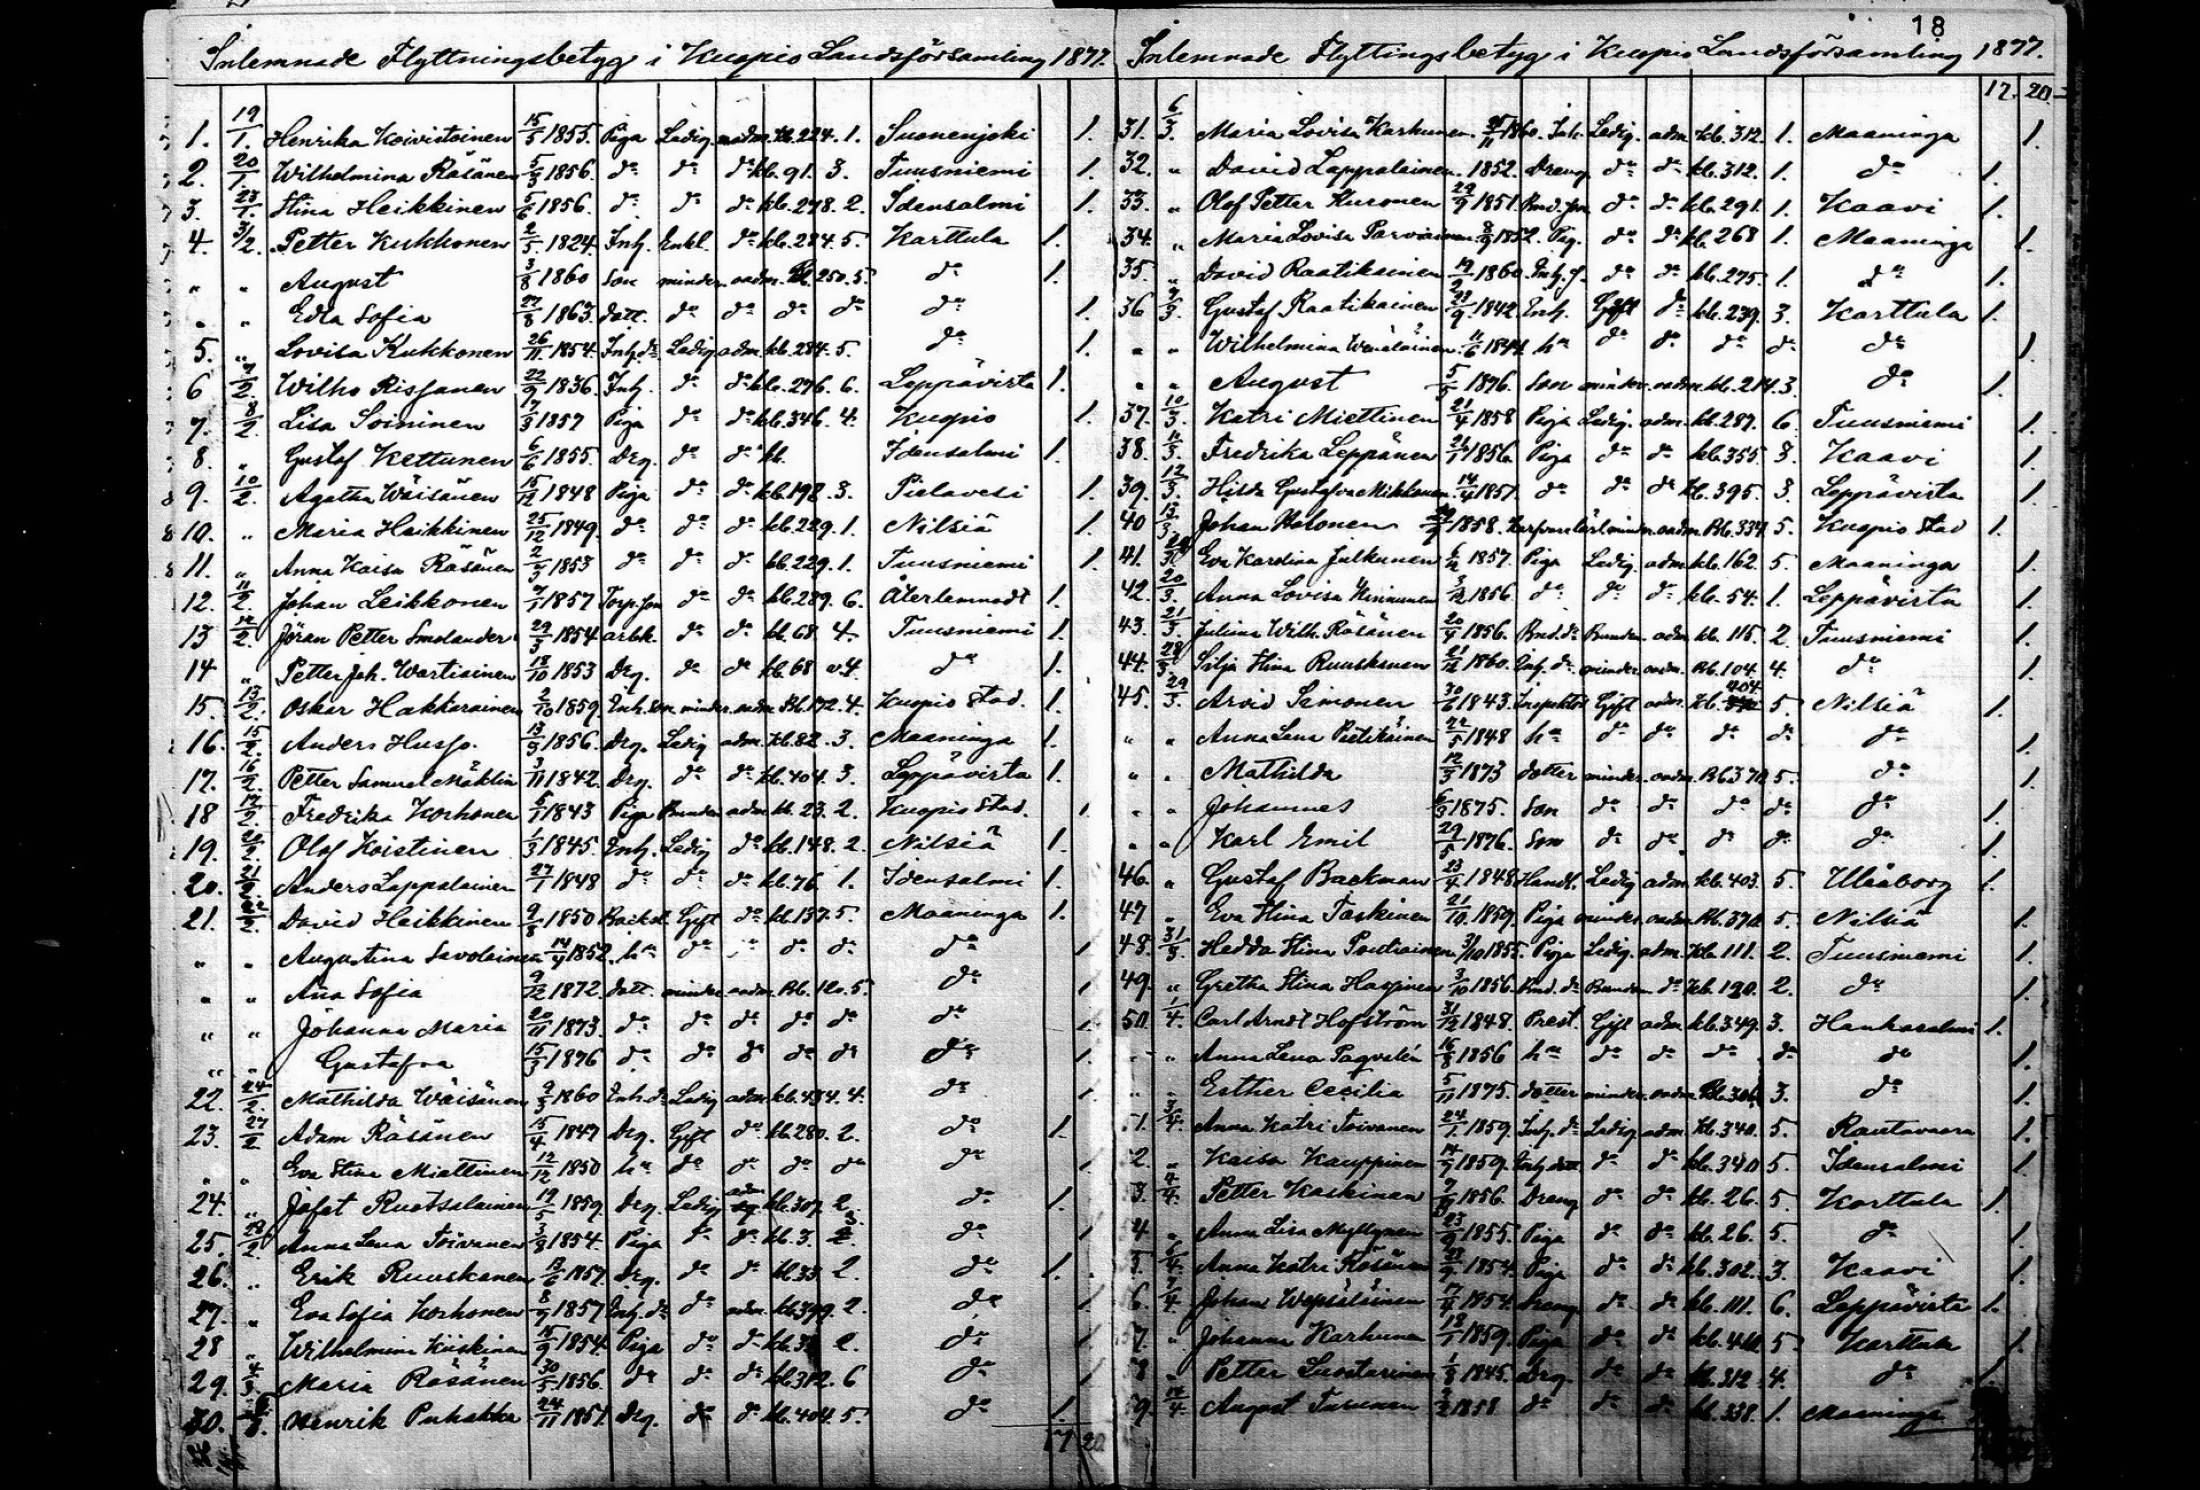 18
Inlemnade Flyttningsbetyg i Kuopio Landsförsamling 1877.
1. 19/1. Henrika Koivistoinen 15/5 1855. Piga Ledig. adm. kb. 224. 1. Suonenjoki 1.
2. 20/1. Wilhelmina Räsänen 5/3 1856. do do do kb. 91. 3. Tuusniemi 1.
3. 23/1. Stina Heikkinen 5/6 1856. do do do kb. 278. 2. Idensalmi 1.
4. 3/2. Petter Kukkonen 2/5. 1824. Inh. Enkl. do kb. 284. 5. Karttula 1.
" " August 3/8 1860 Son minder. oadm. Bb. 250. 5. do 1.
" " Edla Sofia 27/8 1863. dott. do do do do do 1.
5. " Lovisa Kukkonen 26/11 1854. Inh. dr Ledig adm. kb. 284. 5. do 1.
6 7/2. Wilho Rissanen 22/9 1836. Inh. do do kb. 276. 6. Leppävirta 1.
7. 8/2. Lisa Soininen 17/3 1857 Piga do do kb. 346. 4. Kuopio 1.
8. " Gustaf Kettunen 6/6 1855. Drg. do do kb. Idensalmi 1.
9. 10/2. Agatha Wäisänen 15/12 1848 Piga do do kb. 198. 3. Pielavesi 1.
10. " Maria Heikkinen 25/12 1849. do do do kb. 229. 1. Nilsiä 1.
11. " Anna Kaisa Räsänen 2/3 1853 do do do kb. 229. 1. Tuusniemi 1.
12. 11/2. Johan Leikkonen 7/1 1857 Torp. son do do kb. 289. 6. Återlemnadt 1.
13 12/2. Jöran Petter Smolander 29/3 1854 arbk. do do kb. 68. 4. Tuusniemi 1.
14 " Petter Joh. Wartiainen 18/10 1853 Drg. do do kb. 68 v. 4. do 1.
15. 13/2. Oskar Hakkarainen 2/10 1859. Inh. son minder. oadm. Bb. 172. 4. Kuopio Stad. 1.
16. 15/2. Anders Husso. 13/9 1856. Drg. Ledig adm. kb. 82. 3. Maaninga 1.
17. 16/2. Petter Samuel Mäklin 3/11 1842. Drg. do do kb. 404. 3. Leppävirta 1.
18 17/2. Fredrika Korhonen 5/1 1843 Piga Bunden adm. kb. 23. 2. Kuopio Stad. 1.
19. 20/2. Olof Koistinen 1/3 1845. Inh. Ledig do kb. 148. 2. Nilsiä 1.
20. 21/2. Anders Lappalainen 27/1 1848 do do do kb. 76. 1. Idensalmi 1.
21. 22/2. David Heikkinen 9/3 1850 Backst. Gift do kb. 137. 5. Maaninga 1.
" " Augustina Savolainen 14/9 1852. hu do do do do 1
" " Aña Sofia 9/12 1872. dott. minder. oadm. Bb. 120. 5. do 1
" " Johanna Maria 20/11 1873. do do do do do do 1.
" " Gustafva 15/3 1876 do do do do do do 1.
22. 24/2. Mathilda Wäisänen 9/3 1860 Inh. dr Ledig adm. kb. 434. 4. do 1
23. 27/2. Adam Räsänen 15/4 1847 Drg. Gift do kb. 280. 2. do 1.
" " Eva Stina Miettinen 12/12 1850 hu do do do do do 1.
24. " Jafet Ruotsalainen 19/5 1859. Drg. Ledig adm kb. 307. 2. do 1.
25. 28/2. Anna Lena Toivanen 3/8 1854. Piga do do kb. 3. 2. do 1.
26. " Erik Ruuskanen 13/6 1857. Drg. do do kb. 33. 2. do 1.
27. " Eva Sofia Korhonen 8/9 1857 Inh. dr do adm. kb. 399. 2. do 1
28 " Wilhelmina Kiiskinen 15/9 1854. Piga do do kb. 2. do 1
29. 4/3. Maria Räsänen 30/5 1856. do do do kb. 312. 6 do 1
30. Henrik Puhakka 24/11 1851. Drg. do do kb. 404. 5. do 1.
17 20
Inlemnade Flyttingsbetyg i Kuopio Landsförsamling 1877.
17. 20
31. 6/3. Maria Lovisa Karhunen. 1860. Inh. Ledig. adm. kb. 312. 1. Maaninga 1.
32. " David Lappalainen. 1852. Dreng. do do kb. 312. 1. do 1.
33. " Olof Petter Kuronen 29/9 1851. Bnd. son do do kb. 291. 1. Kaavi 1.
34. " Maria Lovisa Parviainen. 8/9 1852. Pig. do do kb. 268 1. Maaninga 1.
35. " David Raatikainen 19/2 1860. Inh. s. do do kb. 275. 1. do 1.
36 9/3. Gustaf Raatikainen 23/9 1842. Inh. Gift do kb. 239. 3. Karttula 1.
" " Wilhelmina Wenäläinen. 11/6 1844. hu do do do do do 1.
" " August 5/5 1876. Son minder. oadm. kb. 214. 3. do 1.
37. 10/3. Katri Miettinen 21/4 1858 Piga Ledig. adm. kb. 287. 6. Tuusniemi 1.
38. Fredrika Leppänen 1856. Piga do do kb. 355. 3. Kaavi 1.
39. 12/3. Hilda Gustafva Mikkonen. 14/4 1857. do do do kb. 395. 3. Leppävirta 1.
40 13/3. Johan Halonen 1858. minder. oadm. Bb. 334. 5. Kuopio Stad 1.
41. Eva Karolina Julkunen 1857. Piga Ledig. adm. kb. 162. 5. Maaninga 1.
42. 20/3. Anna Lovisa Kinnunen 3/12 1856. do do do kb. 54. 1. Leppävirta 1.
43. 21/3. Julina Wilh. Räsänen 20/4 1856. Bnd. dr Bunden. adm. kb. 115. 2. Tuusniemi 1.
44. 28/3. Silja Stina Ruuskanen 21/12 1860. Inh. dr minder. oadm. Bb. 104. 4. do 1.
45. 29/3. Arvid Simonen 30/6 1843. Inspektor Gift adm. kb. 404. 5. Nilsiä 1.
" " Anna Lena Pietikäinen 22/5 1848 hu do do do do do 1.
" " Mathilda 12/3 1873 dotter minder. oadm. Bb 370. 5. do 1.
" " Johannes 6/3 1875. Son do do do do do 1.
" " Karl Emil 29/5 1876. Son do do do do do 1.
46. " Gustaf Backman 23/4 1848. Handl. Ledig adm. kb. 403. 5. Uleåborg 1.
47 " Eva Stina Taskinen 21/10. 1859. Piga minder. oadm. Bb. 370. 5. Nilsiä 1.
48. 31/3. Hedda Stina Poutiainen 3/10 1855. Piga Ledig. adm. kb. 111. 2. Tuusniemi 1.
49. " Gretha Stina Happinen 3/10 1856. Bnd. dr Bunden do kb. 120. 2. do 1.
50. 1/4. Carl Arndt Hofström 31/12 1848. Prest. Gift adm. kb. 349. 3. Hankasalmi 1.
" " Anna Lena Pagvalén 16/8 1856 hu do do do do do 1.
" " Esther Cecilia 5/11 1875. dotter minder. oadm. Bb. 306. 3. do 1.
1. 3/4. Anna Katri Toivanen 24/1. 1859. Inh. dr Ledig adm. kb. 340. 5. Rautavaara 1.
2. " Kaisa Kauppinen 14/9 1859. Inh. dott do do kb. 340 5. Idensalmi 1.
3. 4/4. Petter Kaskinen 1856. Dreng do do kb. 26. 5. Karttula 1.
4. " Anna Lisa Myllynen 23/9 1855. Piga do do kb. 26. 5. do 1.
5. 6/4. Anna Katri Räsänen 1854. Piga do do kb. 302. 3. Kaavi 1.
6. 7/4. Johan Wepsäläinen 17/4 1854. Dreng. do do kb. 111. 6. Leppävirta 1.
57. " Johanna Karhunen 18/1 1859. Piga do do kb. 5. Karttula 1.
8 " Petter Luostarinen 1/3 1845. Drg. do do kb. 312. 4. do 1.
9. 14/4. August Turunen 2/2 1858 do do do kb. 338. 1. Maaninga